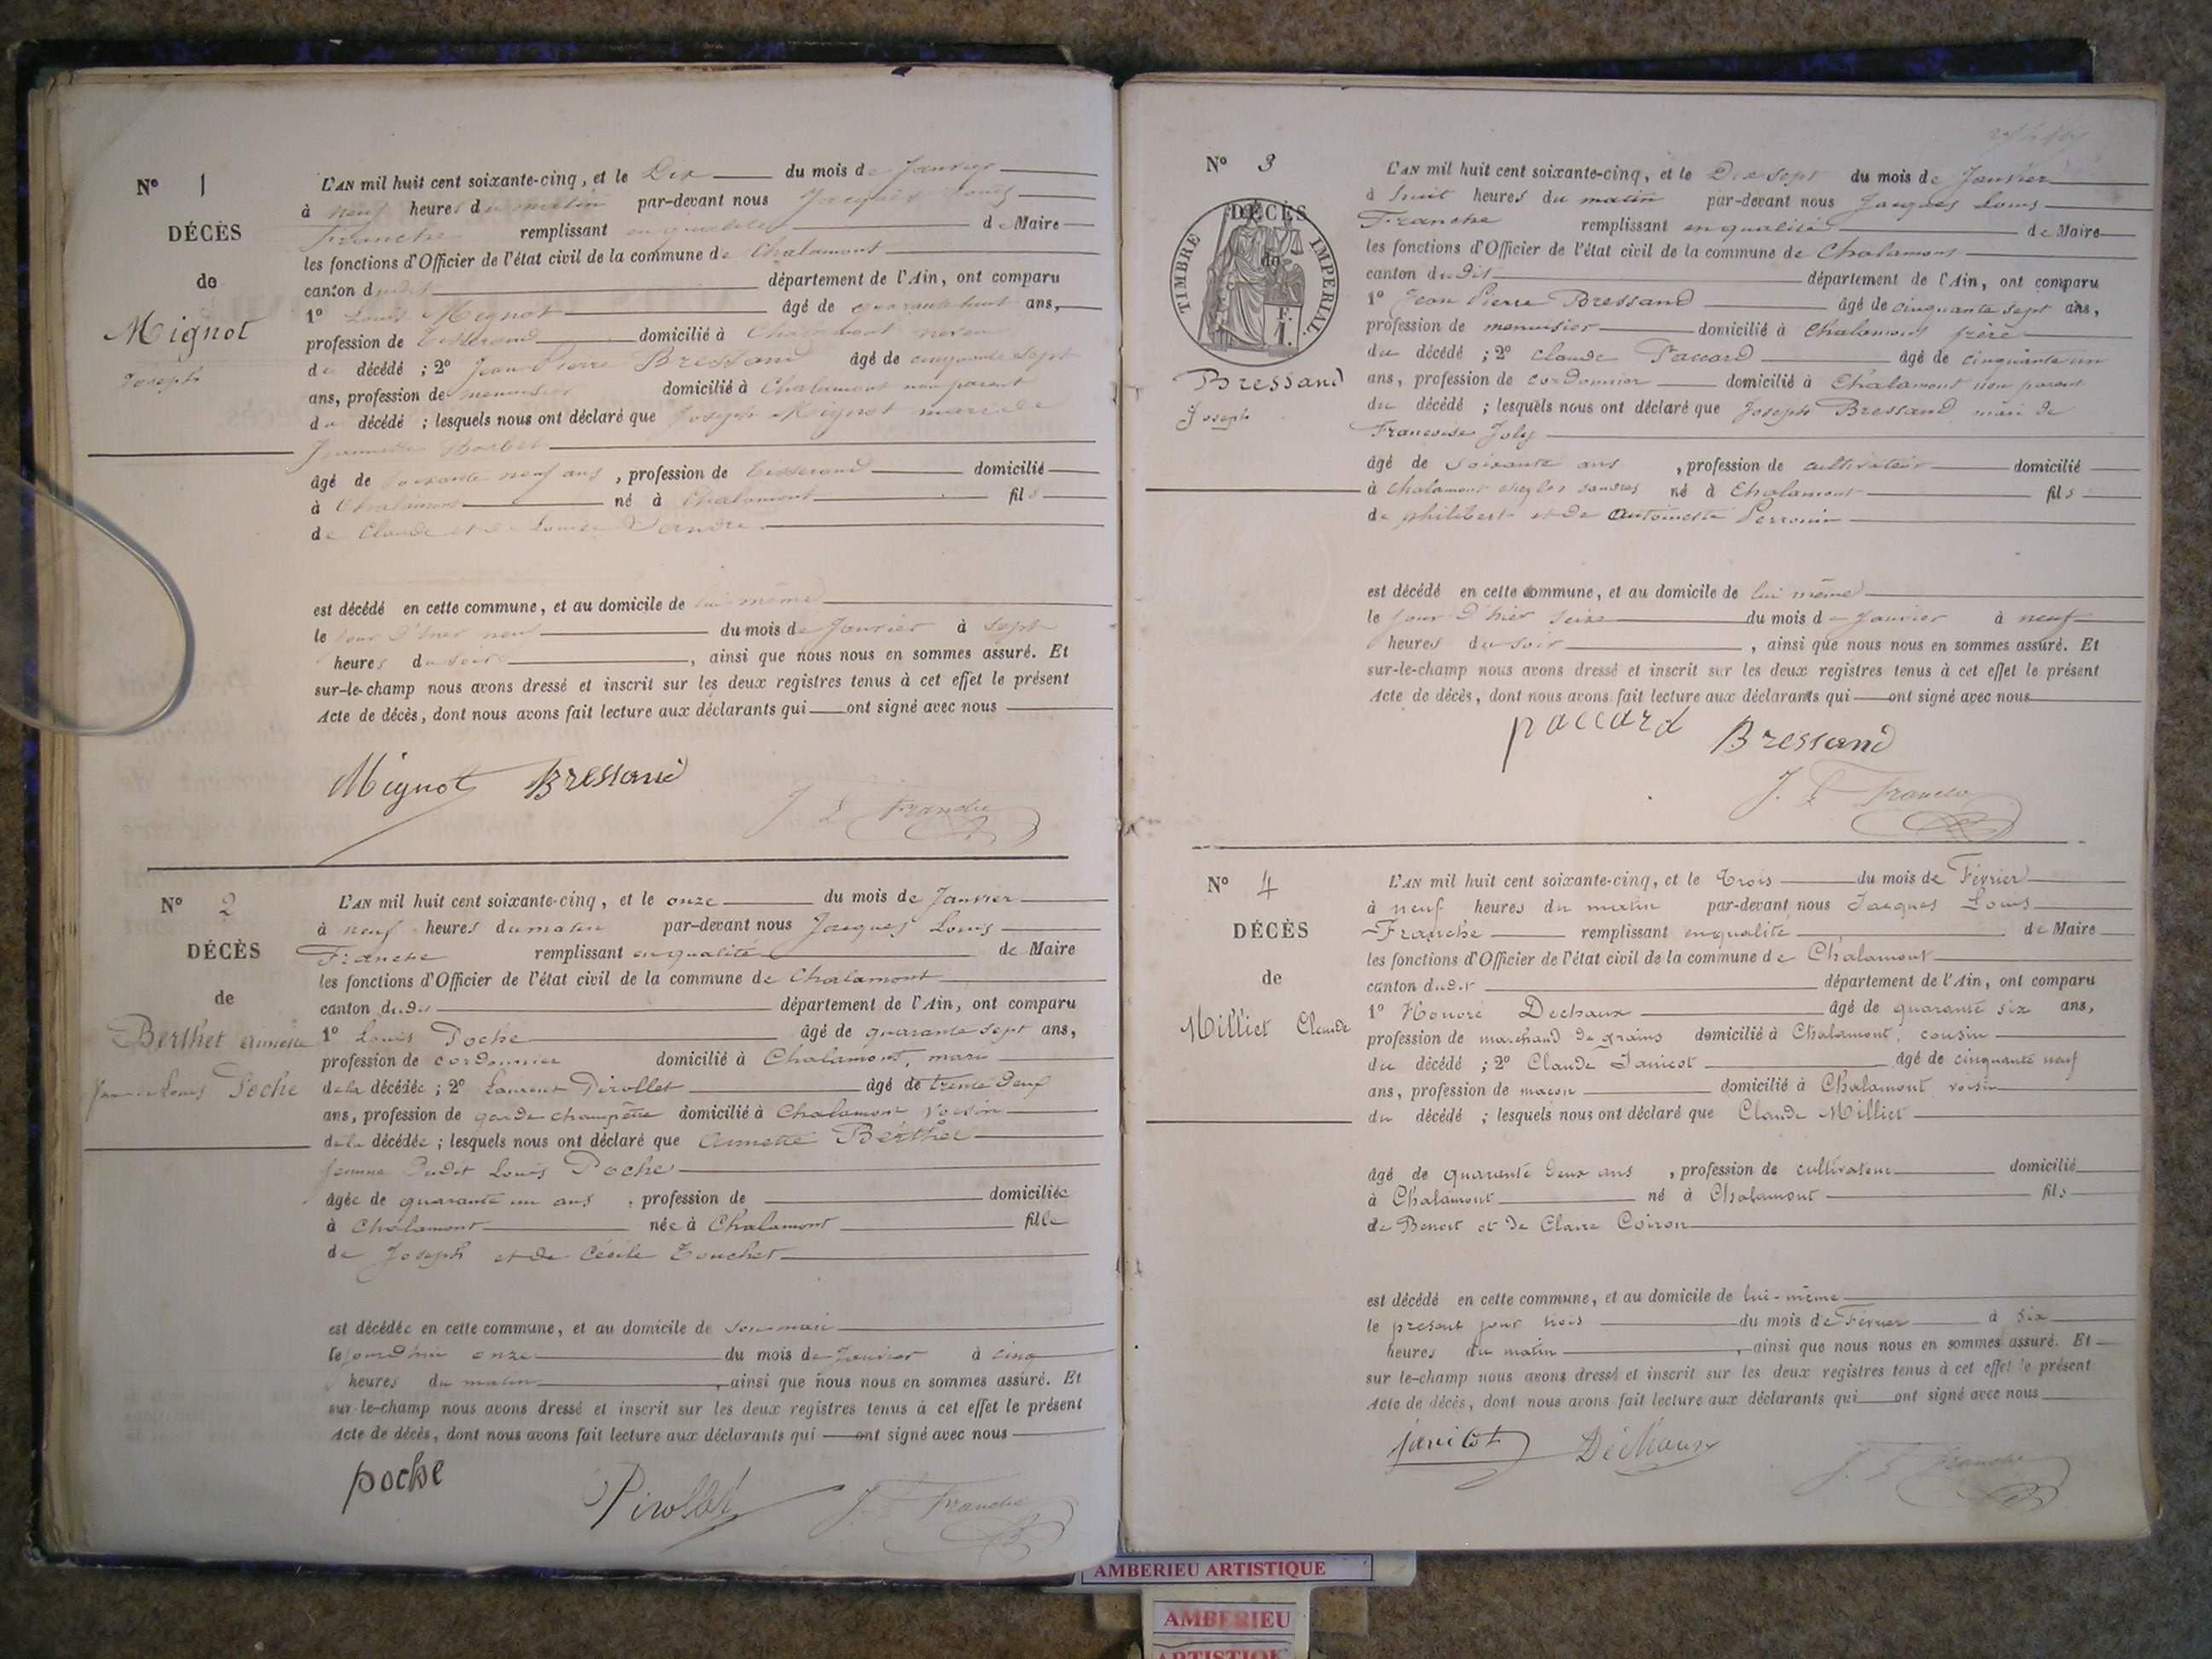 N° 1
DÉCÈS
de
Mignot
Joseph
L'AN mil huit cent soixante-cinq, et le Dix du mois de Janvier
à neuf heures du matin par-devant nous Jacques Louis
Franche remplissant en qualité de Maire
les fonctions d'Officier de l'état civil de la commune de Chalamont
canton dudit département de l'Ain, ont comparu
1° Louis Mignot âgé de quarante huit ans,
profession de tisserand domicilié à Chalamont neveu
du décédé ; 2° Jean Pierre Bressand âgé de cinquante sept
ans, profession de menuisier domicilié à Chalamont non parent
du décédé ; lesquels nous ont déclaré que Joseph Mignot mari de
Jeannette Barbet
âgé de soixante neuf ans, profession de tisserand domicilié
à Chalamont né à Chalamont fils
de Claude et de Louise
est décédé en cette commune, et au domicile de lui même
le jour d'hier neuf du mois de Janvier à sept
heures du soir, ainsi que nous nous en sommes assuré. Et
sur-le-champ nous avons dressé et inscrit sur les deux registres tenus à cet effet le présent
Acte de décès, dont nous avons fait lecture aux déclarants qui ont signé avec nous
Mignot Bressand
J. L. Franche
N° 2
DÉCÈS
de
Berthet Annette
femme Louis Poche
L'AN mil huit cent soixante-cinq, et le onze du mois de Janvier
à neuf heures du matin par-devant nous Jacques Louis
Franche remplissant en qualité de Maire
les fonctions d'Officier de l'état civil de la commune de Chalamont
canton dudit département de l'Ain, ont comparu
1° Louis Poche âgé de quarante sept ans,
profession de cordonnier domicilié à Chalamont, mari
de la décédée ; 2° Laurent Pirollet âgé de trente neuf
ans, profession de garde champêtre domicilié à Chalamont voisin
de la décédée ; lesquels nous ont déclaré que Annette Berthet
femme dudit Louis Poche
âgée de quarante un ans, profession de domiciliée
à Chalamont née à Chalamont fille
de Joseph et de Cécile Touchet
est décédée en cette commune, et au domicile de son mari
le jourd'hui onze du mois de Janvier à cinq
heures du matin, ainsi que nous nous en sommes assuré. Et
sur-le-champ nous avons dressé et inscrit sur les deux registres tenus à cet effet le présent
Acte de décès, dont nous avons fait lecture aux déclarants qui ont signé avec nous
poche
Pirollet J. L. Franche
N° 3
DÉCÈS
de
TIMBRE IMPERIAL.
F.
1.
Bressand
Joseph
L'AN mil huit cent soixante-cinq, et le Dix sept du mois de Janvier
à huit heures du matin par-devant nous Jacques Louis
Franche remplissant en qualité de Maire
les fonctions d'Officier de l'état civil de la commune de Chalamont
canton dudit département de l'Ain, ont comparu
1° Jean Pierre Bressand âgé de cinquante sept ans,
profession de menuisier domicilié à Chalamont frère
du décédé ; 2° Claude Paccard âgé de cinquante un
ans, profession de cordonnier domicilié à Chalamont non parent
du décédé ; lesquels nous ont déclaré que Joseph Bressand mari de
Françoise Joly
âgé de soixante ans, profession de cultivateur domicilié
à Chalamont chez les né à Chalamont fils
de philibert et de Antoinette Perronin
est décédé en cette commune, et au domicile de lui même
le jour d'hier seize du mois de Janvier à neuf
heures du soir, ainsi que nous nous en sommes assuré. Et
sur-le-champ nous avons dressé et inscrit sur les deux registres tenus à cet effet le présent
Acte de décès, dont nous avons fait lecture aux déclarants qui ont signé avec nous
paccard Bressand
J. L. Franche
N° 4
DÉCÈS
de
Milliet Claude
L'AN mil huit cent soixante-cinq, et le Trois du mois de Février
à neuf heures du matin par-devant nous Jacques Louis
Franche remplissant en qualité de Maire
les fonctions d'Officier de l'état civil de la commune de Chalamont
canton dudit département de l'Ain, ont comparu
1° Honoré Dechaux âgé de quarante six ans,
profession de marchand de grains domicilié à Chalamont, cousin
du décédé ; 2° Claude Janicot âgé de cinquante neuf
ans, profession de maçon domicilié à Chalamont voisin
du décédé ; lesquels nous ont déclaré que Claude Milliet
âgé de quarante deux ans, profession de cultivateur domicilié
à Chalamont né à Chalamont fils
de Benoit et de Claire Coiron
est décédé en cette commune, et au domicile de lui-même
le présent jour trois du mois de Février à six
heures du matin, ainsi que nous nous en sommes assuré. Et
sur le-champ nous avons dressé et inscrit sur les deux registres tenus à cet effet le présent
Acte de décès, dont nous avons fait lecture aux déclarants qui ont signé avec nous
janicot Déchaux
J. L. Franche
AMBERIEU ARTISTIQUE
AMBERIEU
ARTISTIQUE